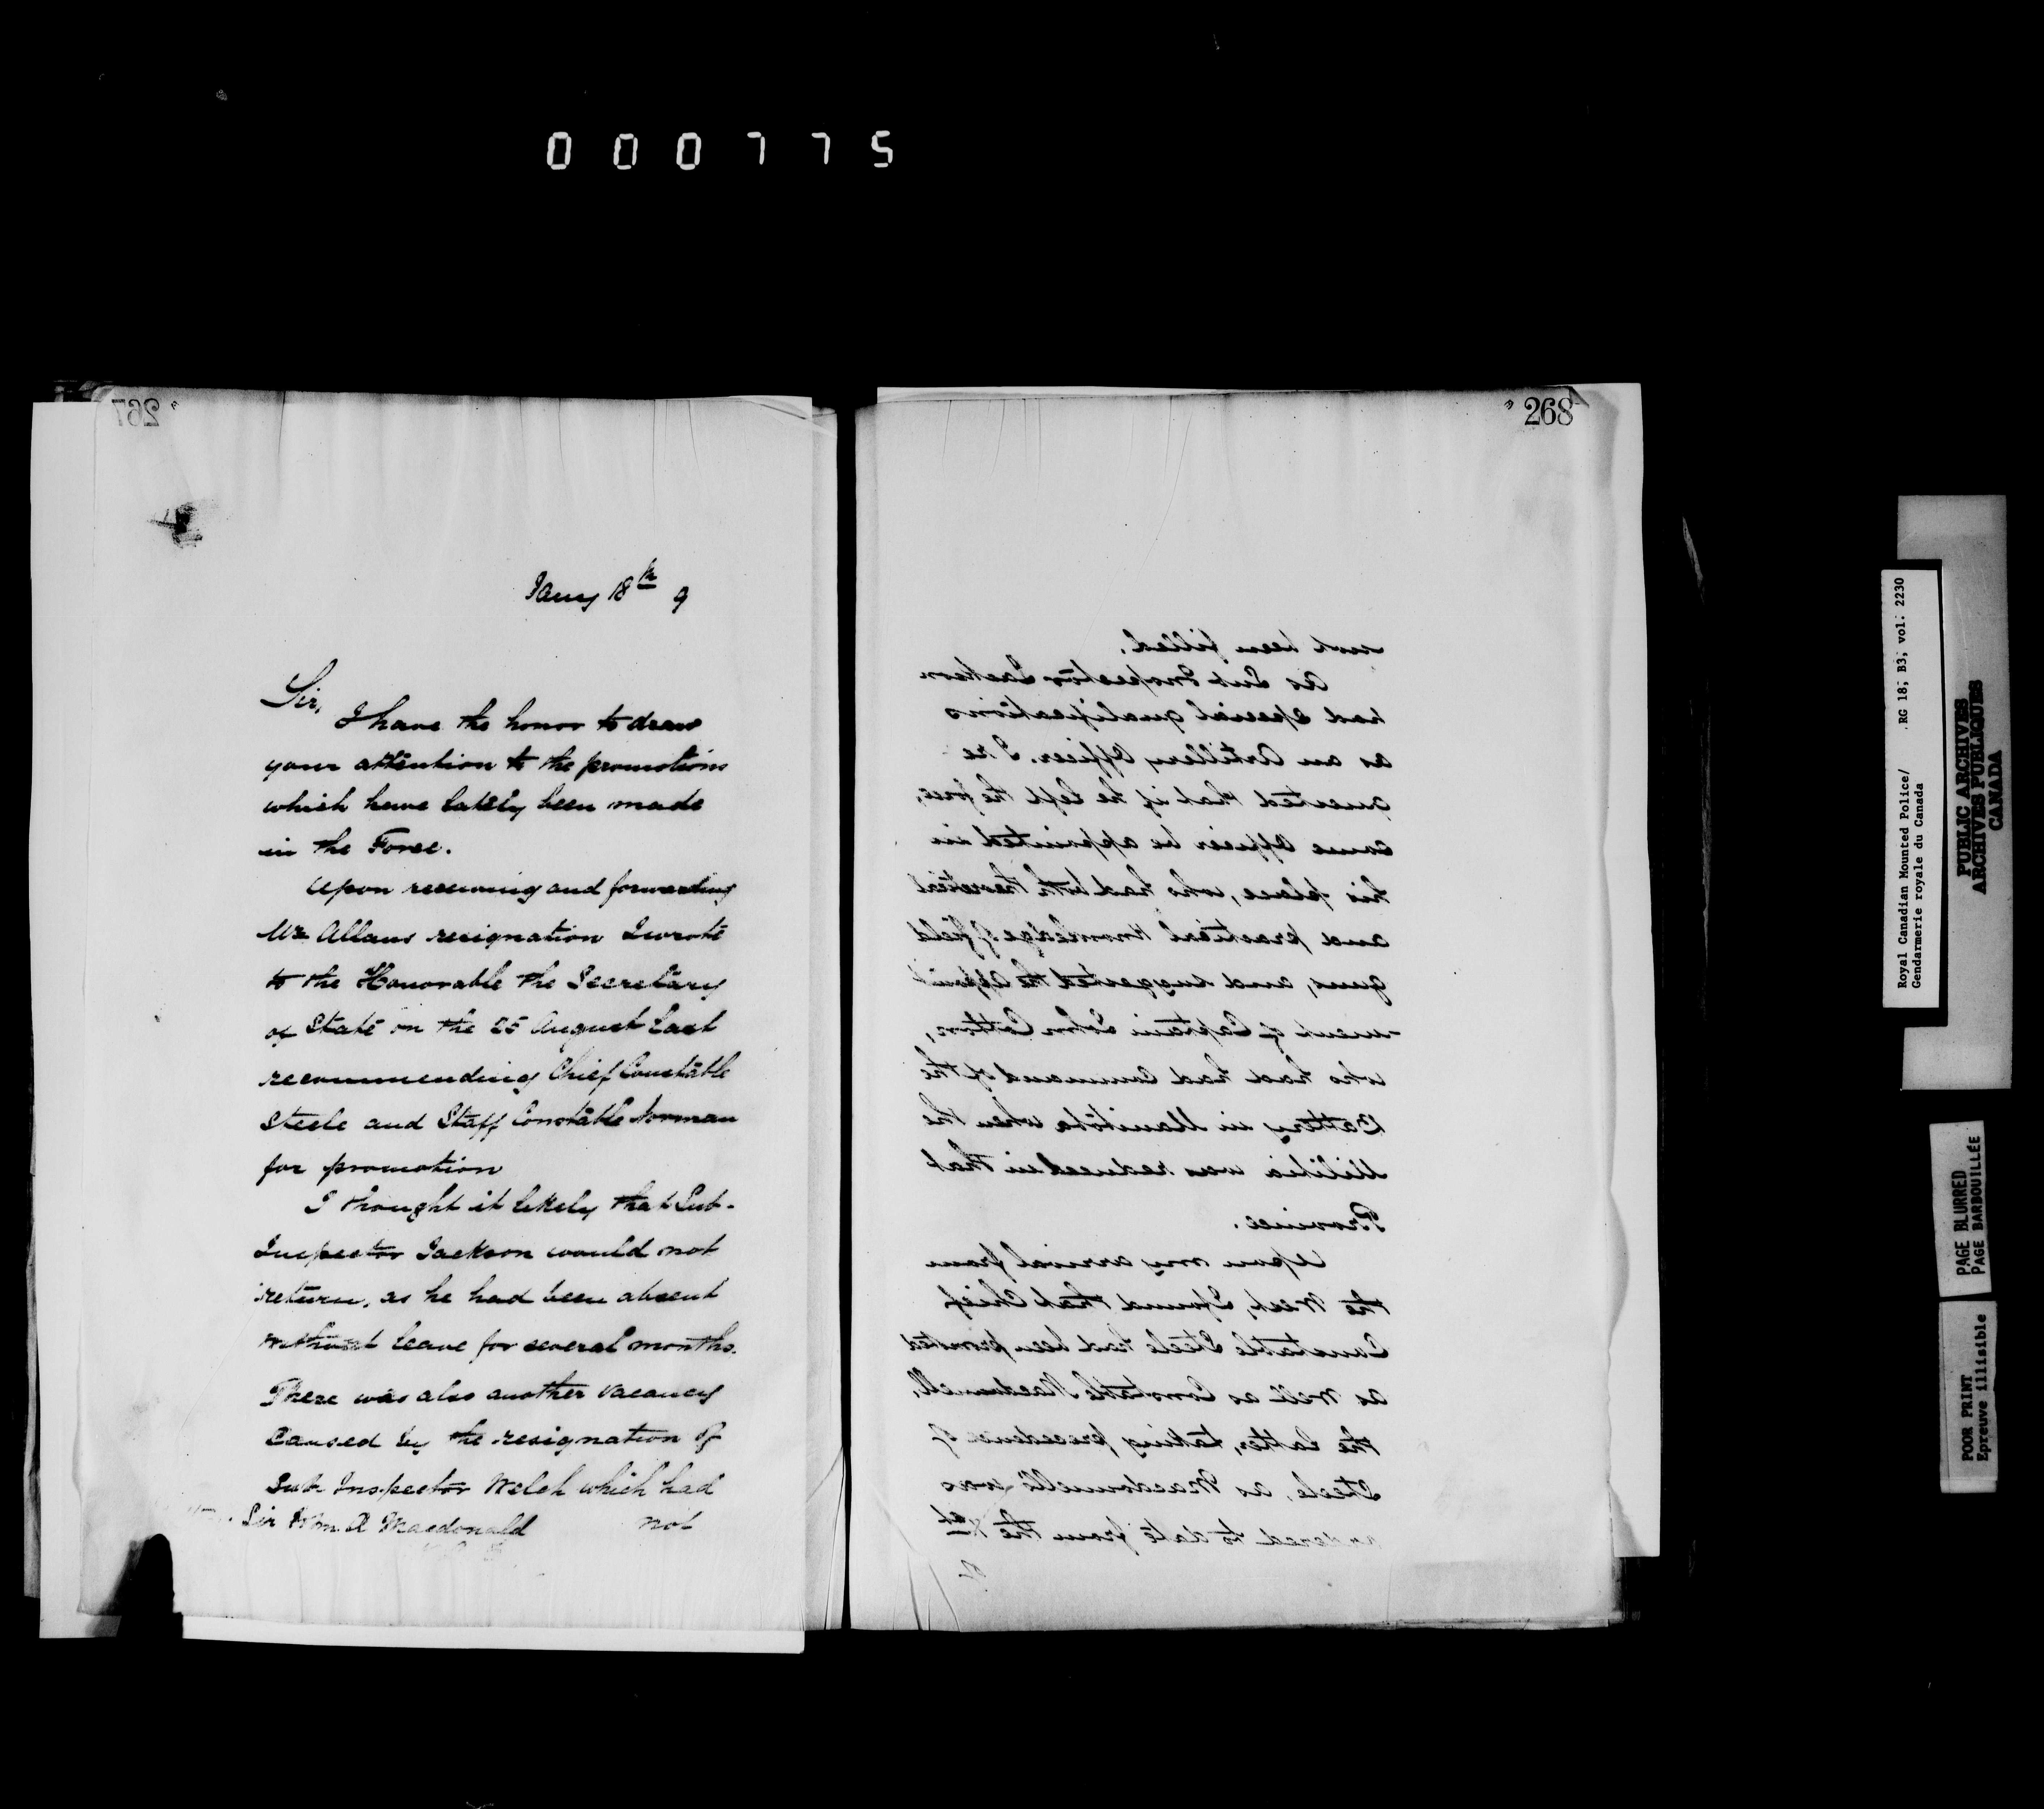 000775
267
Jany 18th 9
Sir,
I have the honor to draw
your attention to the promotions
which have lately been made
in the Force.
Upon receiving and forwarding
Mr Allans resignation I wrote
to the Honorable the Secretary
of State on the 25 August last
recommending Chief Constable
Steele and Staff Constable Norman
for promotion
I thought it likely that Sub-
Inspector Jackson would not
return, as he had been absent
without leave for several months.
There was also another vacancy
caused by the resignation of
Sub Inspector Welch which had
Sir John A Macdonald not
268
not been filled.
As Sub Inspector Jackson
had special qualifications
as an Artillery Officer. I re-
quested that if he left the force,
some Officer be appointed in
his place, who had both theoretical
and practical knowledge of field
guns, and suggested the appoint
-ment of Captain John Cotton,
who had had Command of the
Battery in Manitoba when the
Militia was reduced in that
Province.
Upon my arrival from
the West, I found that Chief
Constable Steele had been promoted
as well as Constable Macdonell,
the latter, taking precedence of
Steele, as Macdonell's was
to date from the 1st
Royal Canadian Mounted Police/ RG 18; B3; vol. 2230
Gendarmerie royale du Canada
PUBLIC ARCHIVES
ARCHIVES PUBLIQUES
CANADA
PAGE BLURRED
PAGE BARBOUILLÉE
POOR PRINT
Epreuve illisible